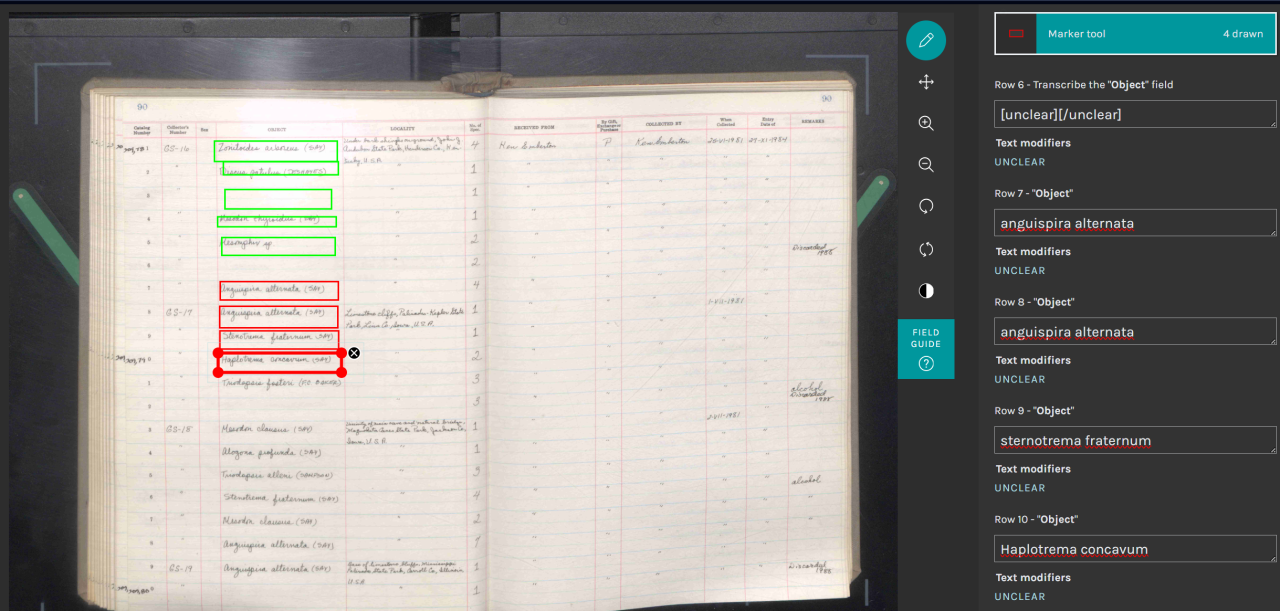 90
90
Catalog Number
Collector's Number
Sex
OBJECT
LOCALITY
No. of Spec.
RECEIVED FROM
By Gift, Exchange or Purchase
COLLECTED BY
When Collected
Entry Date of
REMARKS
GS-16 Zonitoides arboreus (SAY) 4 P
State Park, Henderson Co.,
U.S.A.
2 (DESHAYES) 1
3 1
4 Mesodon thyroidus (SAY) 1
5 Mesomphix sp 2 Discarded 1988
6 2
7 Anguispira alternata (SAY) 4
8 GS-17 Anguispira alternata (SAY) Limestone cliffs, Palisades-Kepler State 1 1-VII-1951
Park, Linn Co., Iowa, U.S.A.
9 Stenotrema fraternum (SAY) 1
Haplotrema concavum (SAY) 2
1 Triodopsis fosteri (F.C. BAKER) 3 alcohol
Discarded 1988
2 3
3 GS-18 Mesodon clausus (SAY) 1 2-VII-1951
State Park, Jackson Co.,
Iowa, U.S.A.
4 Allogona profunda (SAY) 1
5 Triodopsis alleni 3 alcohol
6 Stenotrema fraternum (SAY) 4
7 Mesodon clausus (SAY) 2
8 Anguispira alternata (SAY) 1
9 GS-19 Anguispira alternata (SAY) Base of limestone bluffs, Mississippi 1 Discarded 1988
Palisades State Park, Carroll Co., Illinois,
U.S.A.
1
FIELD
GUIDE
Marker tool
4 drawn
Row 6 - Transcribe the "Object" field
[unclear][/unclear]
Text modifiers
UNCLEAR
Row 7 - "Object"
anguispira alternata
Text modifiers
UNCLEAR
Row 8 - "Object"
anguispira alternata
Text modifiers
UNCLEAR
Row 9 - "Object"
sternotrema fraternum
Text modifiers
UNCLEAR
Row 10 - "Object"
Haplotrema concavum
Text modifiers
UNCLEAR